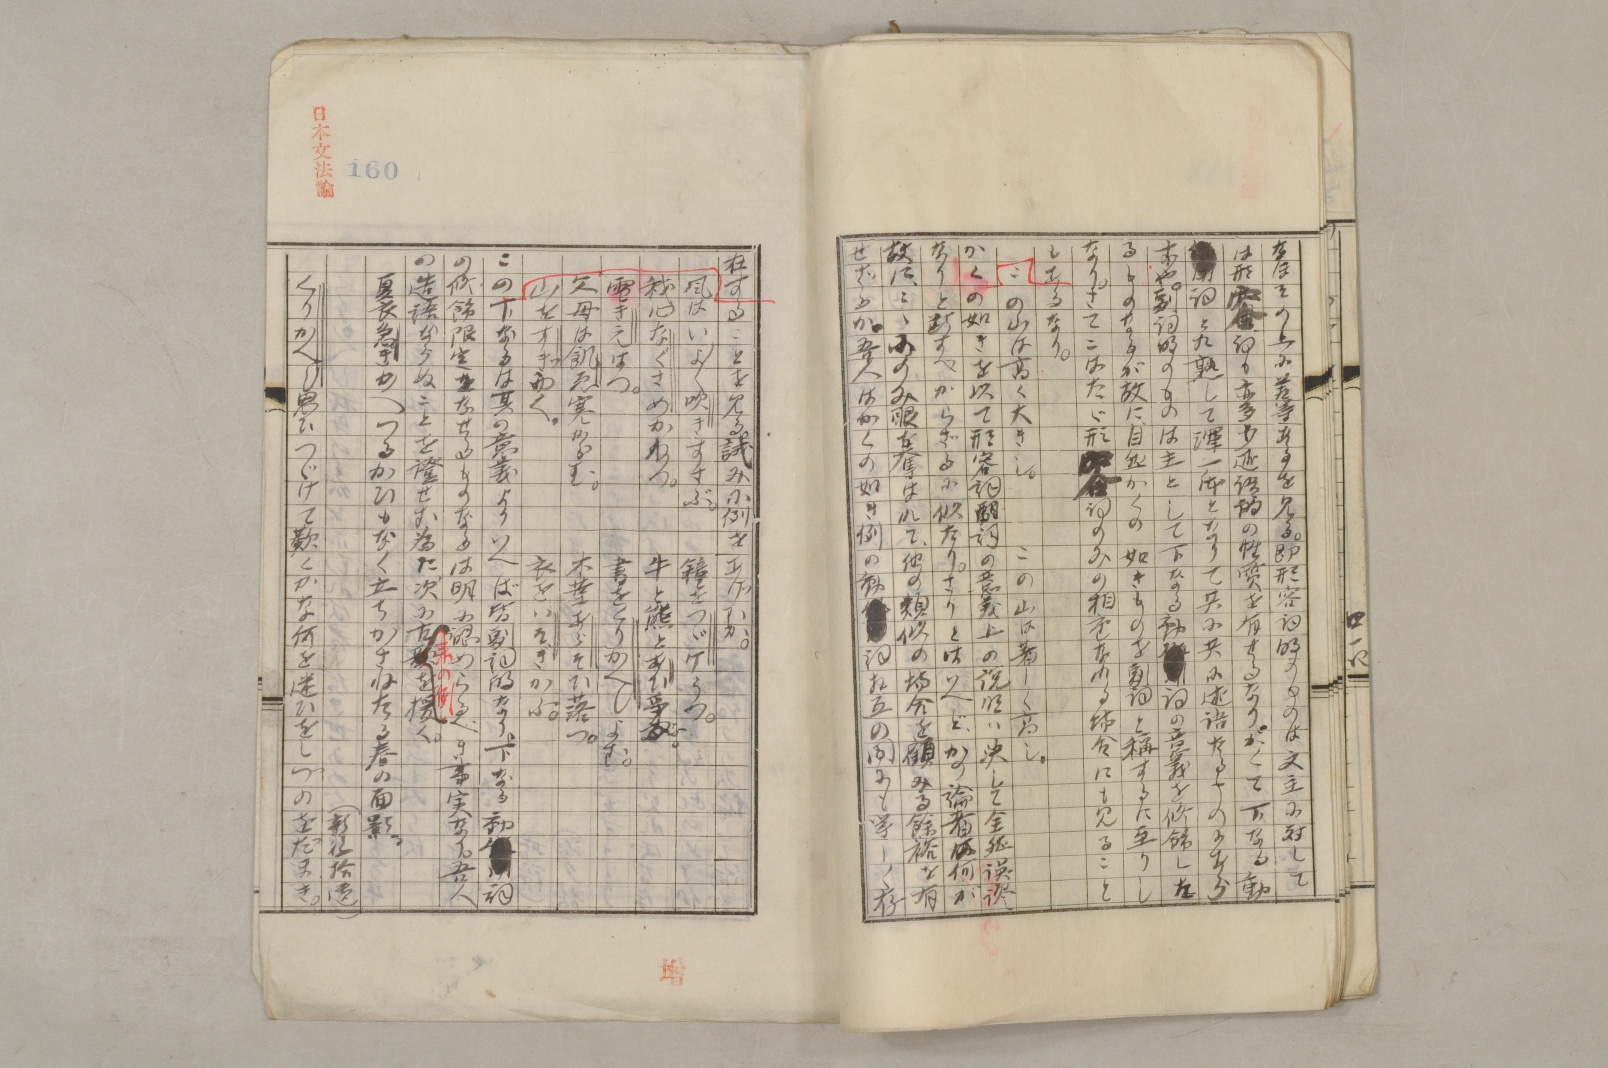 なほその上に差等あるを見る。即形容詞的のものは文主に対して
は形容詞も亦多少述語的の性質を有せるなり。かくて下なる動
詞と相熟して渾一体となりて共に共に述語たるものにあら
ずや。副詞的のものは主として下なる動詞の意義を修飾した
るものなるが故に自然かくの如きものを副詞と称するに至りし
なり。さてこはたゞ形容詞のみの相重なれる場合にも見ること
もあるなり。
この山は高く大きし。 この山は著しく高し。
かくの如きを以て形容詞副詞の意義上の説明は決して全然誤謬
なりと断ずべからざるに似たり。さりとはいへど、かの論者は何が
故に、のみ眼を奪はれて、他の類似の場合を顧みる餘裕を有
せざるか。吾人はかくの如き例の動詞相互の間にも等しく存
日本文法論
160
在することを見る。試みに例をあげむか。
風はいよ〱吹きすさぶ。 鐘をつゞけうつ。
我心なぐさめかねつ。 牛と熊とあひ争ふ。
雪きえはつ。 書をとりかへしよむ。
父母は飢ゑ寒からむ。 木葉あらそひ落つ。
山をすぎ行く。 衣をいそぎかふ。
この下なるは其の意義よりいへば皆副詞的なり。下なる動詞
の修飾限定をなせるものなるは明に認めらるべき事実なり。吾人
の造語ならぬことを證せむ為に次に古来の例を援く。
夏衣急ぎかへつるかひもなく立ちかさねたる春の面影。
(新後拾遺)
くりかへし思ひつゞけて歎くかな何を迷ひをしづのをだまき。
増